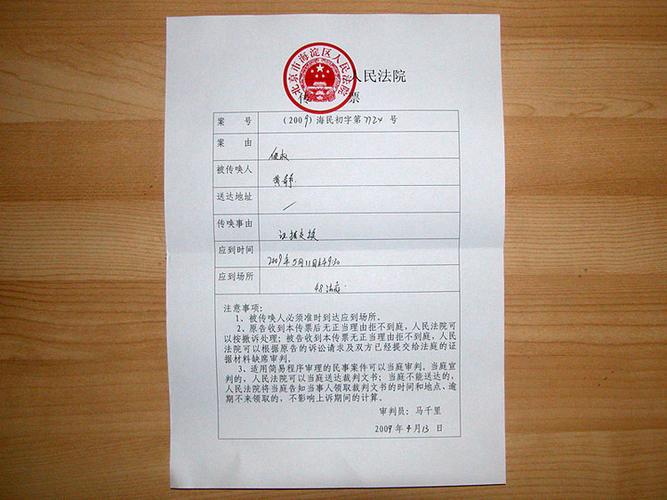 北京市海淀区人民法院
人民法院
传 票
案 号 (2009) 海民初字第7724 号
案 由 侵权
被传唤人
送达地址 /
传唤事由 证据交换
应到时间 2009年5月11日上午9:30
应到场所 48法庭
注意事项:
1、被传唤人必须准时到达应到场所。
2、原告收到本传票后无正当理由拒不到庭,人民法院可
以按撤诉处理;被告收到本传票无正当理由拒不到庭,人民
法院可以根据原告的诉讼请求及双方已经提交给法庭的证
据材料缺席审判。
3、适用简易程序审理的民事案件可以当庭审判。当庭宣
判的,人民法院可以当庭送达裁判文书;当庭不能送达的,
人民法院将当庭告知当事人领取裁判文书的时间和地点、逾
期不来领取的,不影响上诉期间的计算。
审判员:马千里
2009 年 4 月 13 日